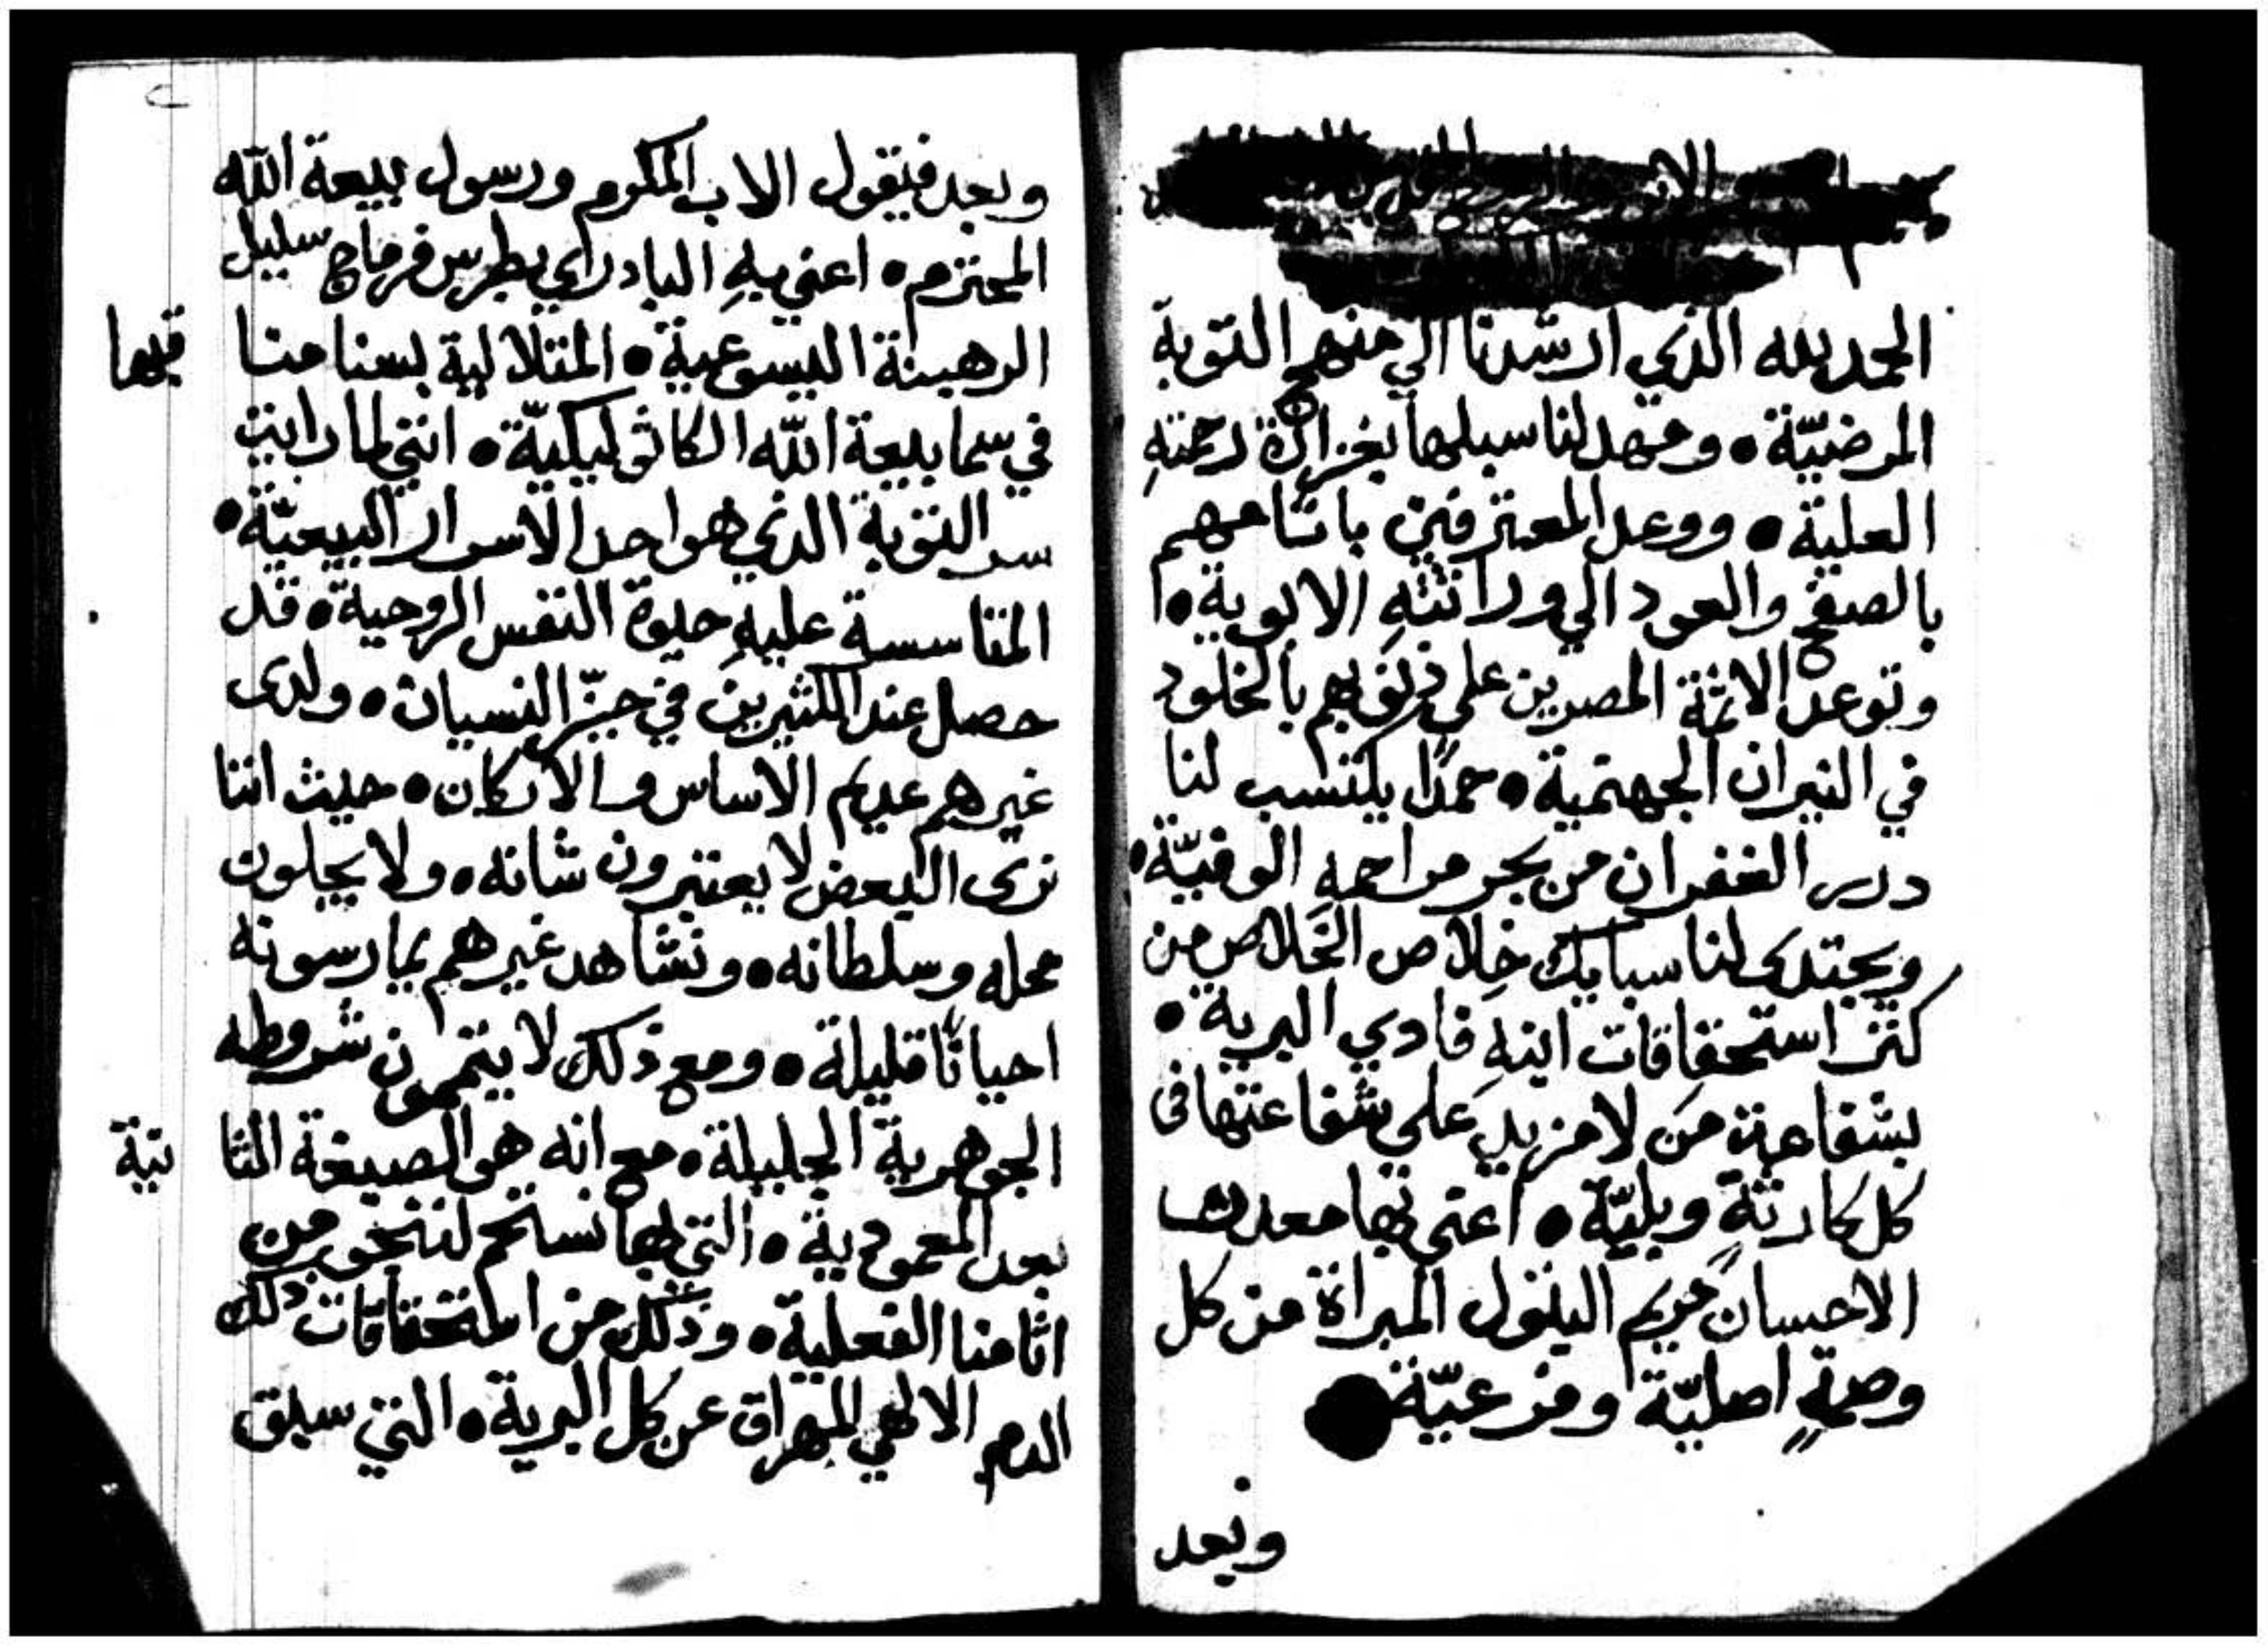 الحمد لله الذي ارشدنا الي منهج التوبة
المرضيّة • ومهد لنا سبلها بغزارة رحمتهِ
العلية • ووعد المعترفين باثامهم
بالصفح والعود الي وراثتهِ الابوية • ا
وتوعد الاثمة المصرين علي ذنوبهم بالخلود
في النيران الجهنمية • حمدًا يكتسب لنا
درر الغفران من بحر مراحمهِ الوفيّة •
ويجتدى لنا سبايك خِلاص الخَلاص من
كنز استحقاقات ابنهِ فادي البرية •
بشفاعة مَن لا مزيد علي شفاعتها فى
كل كارثةٍ وبليّة • اعني بها معدن
الاحسان مريم البتول المبراة من كل
وصمةٍ اصليّة وفرعيّة
وبعد
وبعد فيقول الاب المكرم ورسول بيعة الله
المحترم • اعني بهِ البادراي بطرس فرماج سليل
الرهبنة اليسوعية • المتلالية بسنا منا قبها
في سما بيعة الله الكاثوليكيّة • انني لما رايت
سر التوبة الذي هو احد الاسرار البيعيّة •
المتاسسة عليهِ حيوة النفس الروحية • قد
حصل عند الكثيرين في حيّز النسيان • ولدى
غيرهم عديم الاساس والاركان • حيث اننا
نرى البعض لا يعتبرون شانه • ولا يجلون
محله وسلطانه • ونشاهد غيرهم يمارسونه
احيانًا قليلة • ومع ذلك لا يتممون شروطه
الجوهرية الجليلة • مع انه هو الصيغة الثا نية
بعد المعمودية • التي بها نستحم لننجو من
اثامنا الفعلية • وذلك من استحقاقات ذلك
الدم الالهي المهراق عن كل البرية • التي سبق